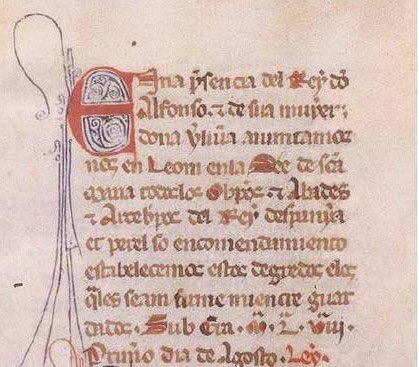 Ena p̃sencia del Rey dõ
Alfonso ⁊ de sua muyer
dona yluira aiuntamos
nos en Leom enla See de scã
maria todelos obpos ⁊ Abades
⁊ Arcebpos del Rey despanya
et perel so encomendamiento
establecemos estos degredos elos
q̃les seam firme miencre guar
dados. Sub Era. M̃. L. viii.
Primo dia de Agosto. Ley.